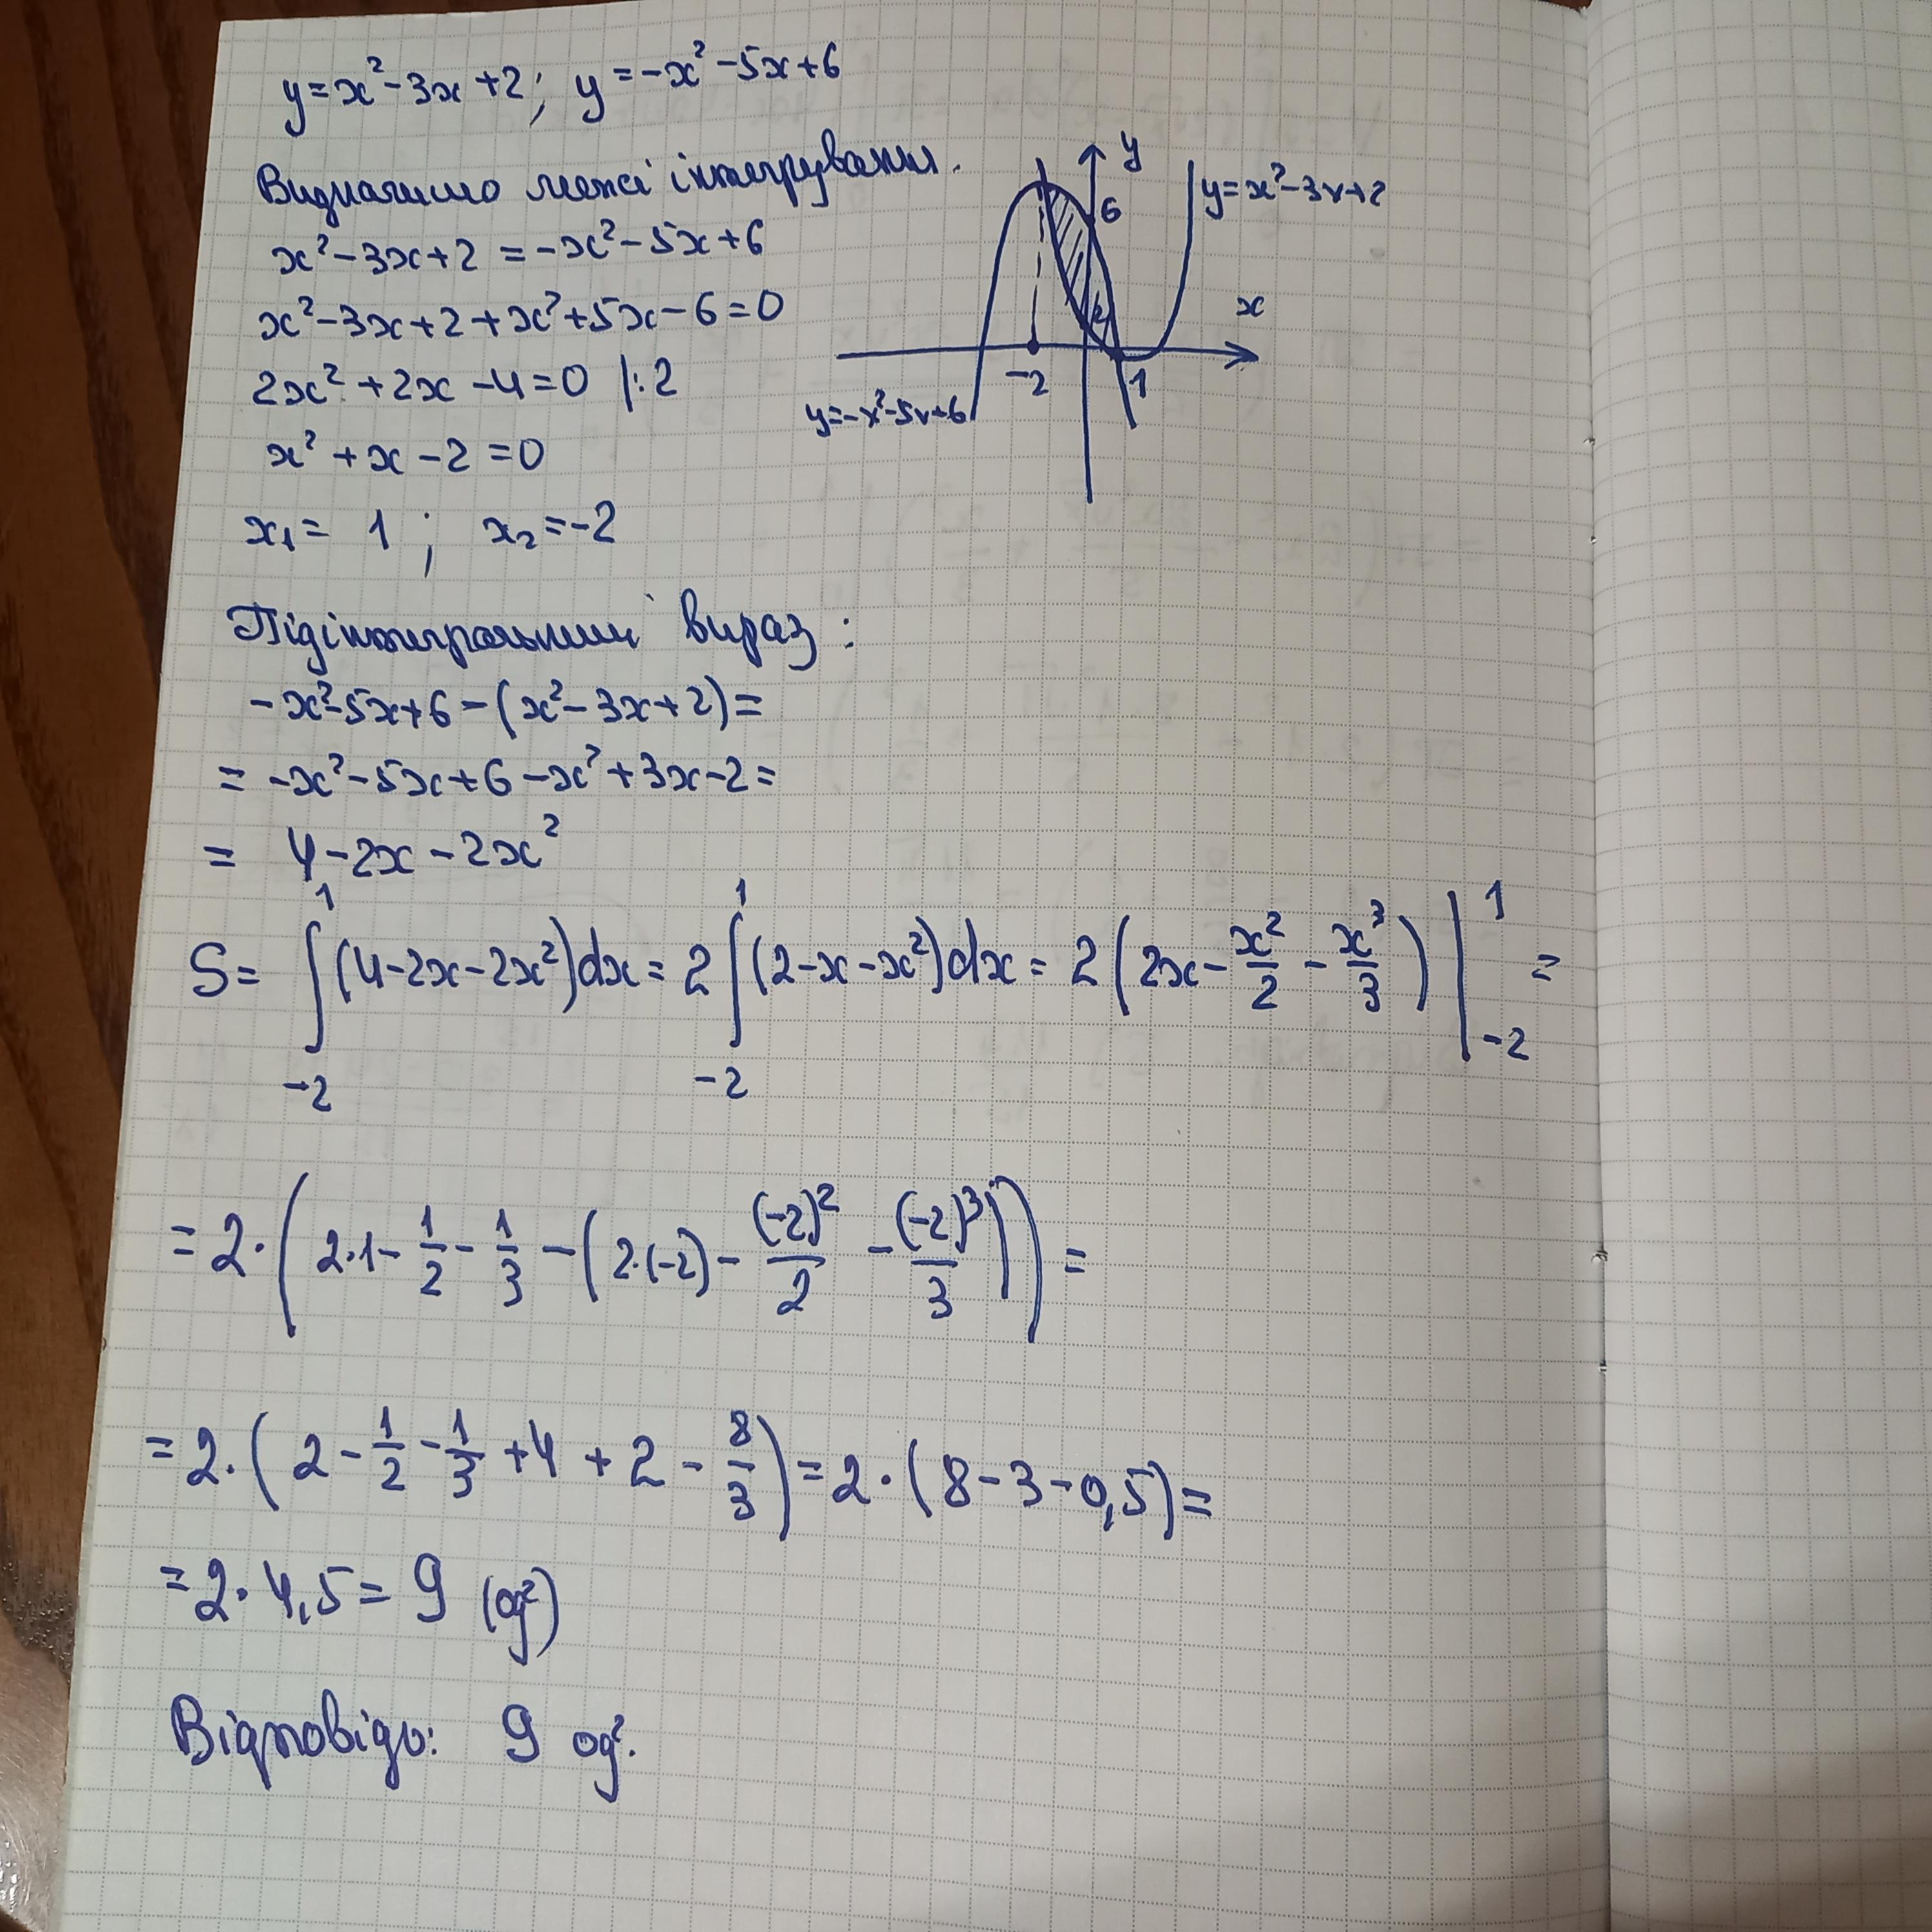 y=x²-3x+2; y=-x²-5x+6
Визначимо межі інтегрування.
x²-3x+2=-x²-5x+6
x²-3x+2+x²+5x-6=0
2x²+2x-4=0 |:2
x²+x-2=0
x₁= 1 ; x₂=-2
y
6
y=x²-3x+2
x
2
-2
1
y=-x²-5x+6
Підінтегральний вираз:
-x²-5x+6-(x²-3x+2)=
= -x²-5x+6-x²+3x-2=
= 4-2x-2x²
S= ∫₋₂¹(4-2x-2x²)dx = 2∫₋₂¹(2-x-x²)dx = 2(2x-x²/2-x³/3)|₋₂¹ =
=2·(2·1-1/2-1/3-(2·(-2)-(-2)²/2-(-2)³/3))=
=2·(2-1/2-1/3+4+2-8/3)=2·(8-3-0,5)=
=2·4,5= 9 (од²)
Відповідь: 9 од².